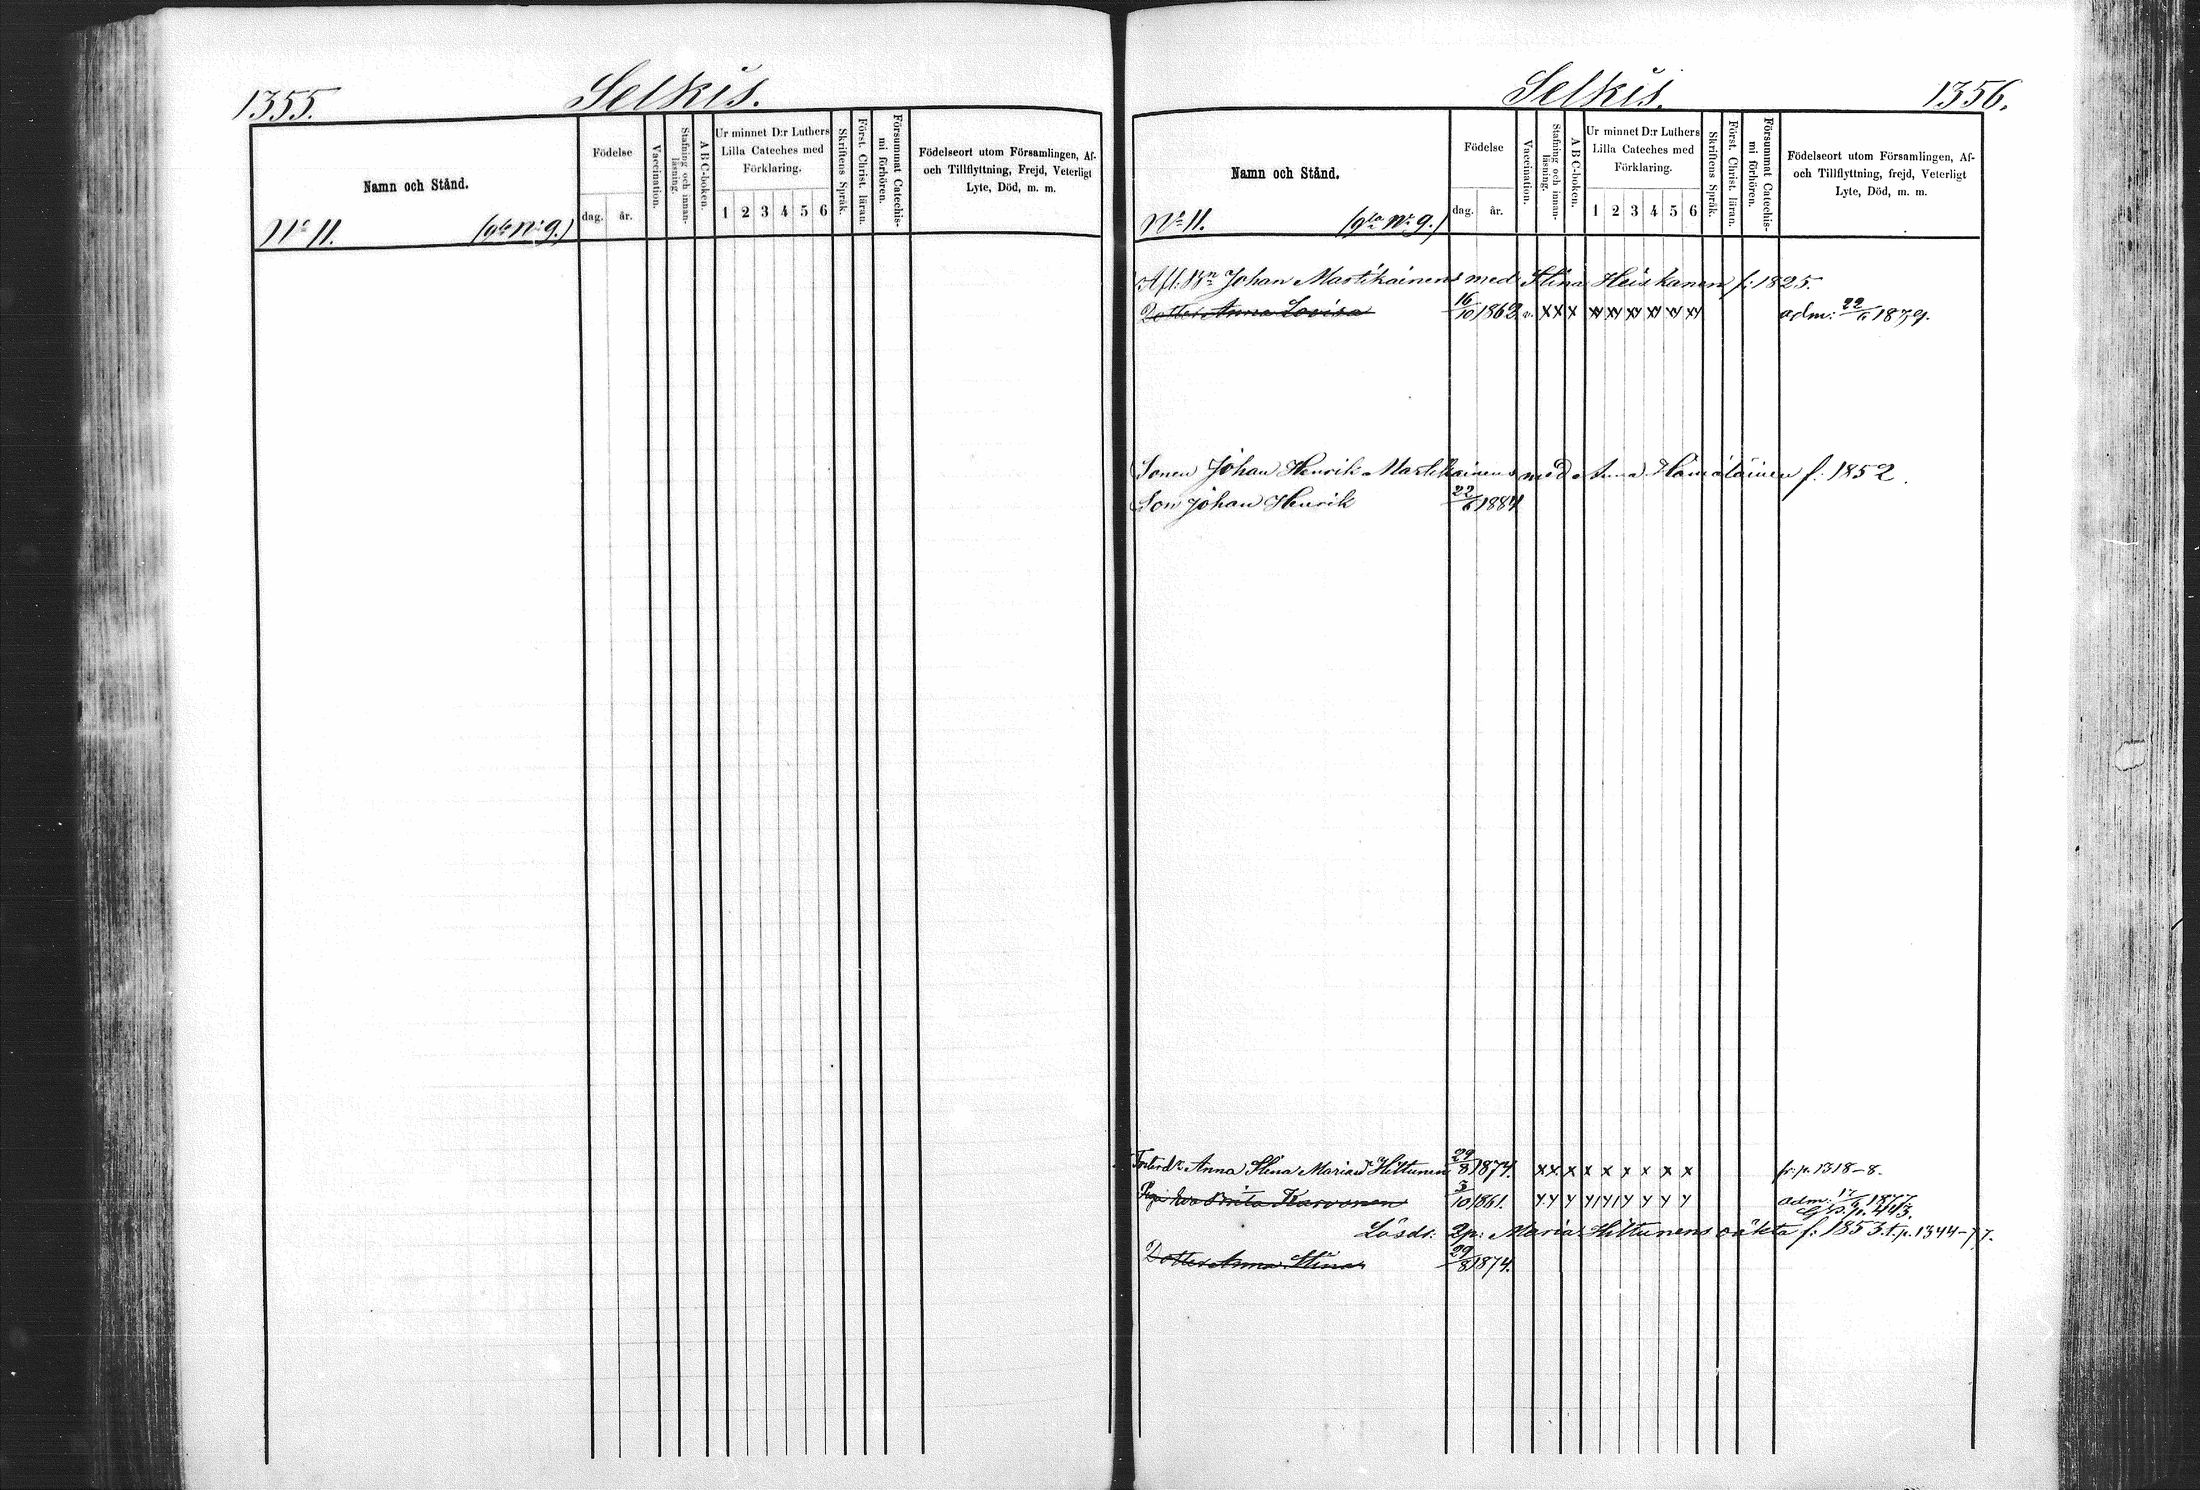 1355.
Selkis.
Namn och Stånd.
Födelse
dag. år.
Vaccination.
Stafning och innanläsning.
ABC-boken.
Ur minnet D:r Luthers
Lilla Cateches med
Förklaring.
1 2 3 4 5 6
Skriftens Språk.
Först. Christ. läran.
Försummat Catechismi förhören.
Födelseort utom Församlingen, Af-
och Tillflyttning, Frejd, Veterligt
Lyte, Död, m. m.
No 11. (gla No 9.)
Selkis.
1356.
Namn och Stånd.
Födelse
dag. år.
Vaccination.
Stafning och innanläsning.
ABC-boken.
Ur minnet D:r Luthers
Lilla Cateches med
Förklaring.
1 2 3 4 5 6
Skriftens Språk.
Först. Christ. läran.
Försummat Catechismi förhören.
Födelseort utom Församlingen, Af-
och Tillflyttning, frejd, Veterligt
Lyte, Död, m. m.
No 11. (gla No 9.)
Afl. Bn Johan Martikainens med Stina Heiskanen f. 1825.
Dotter Anna Lovisa 16/10 1862 v. x x x x x x x x x adm: 22/6 1879.
Sonen Johan Henrik Martikainens med Anna Hämäläinen f. 1852.
Son Johan Henrik 22/6 1884
Fosterdr Anna Stina Maria Hiltunen 29/8 1874. x x x x x x x x x fr. p. 1318-8.
Pig. Eva Brita Karvonen 3/10 1861. adm: 17/6 1877
p. 443.
Lösdr: 2p: Maria Hiltunens oäkta f: 1853. t. p. 1344-77.
Dotter Anna Stina 29/8 1874.